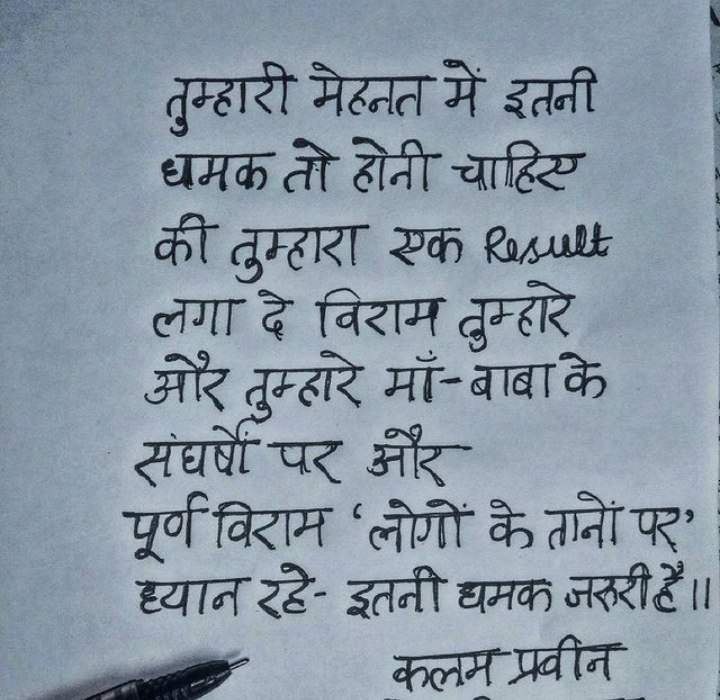 तुम्हारी मेहनत में इतनी
धमक तो होनी चाहिए
की तुम्हारा एक Result
लगा दे विराम तुम्हारे
और तुम्हारे माँ-बाबा के
संघर्षों पर और
पूर्ण विराम ‘लोगों के तानों पर’
ध्यान रहे- इतनी धमक जरुरी है॥
कलम प्रवीन